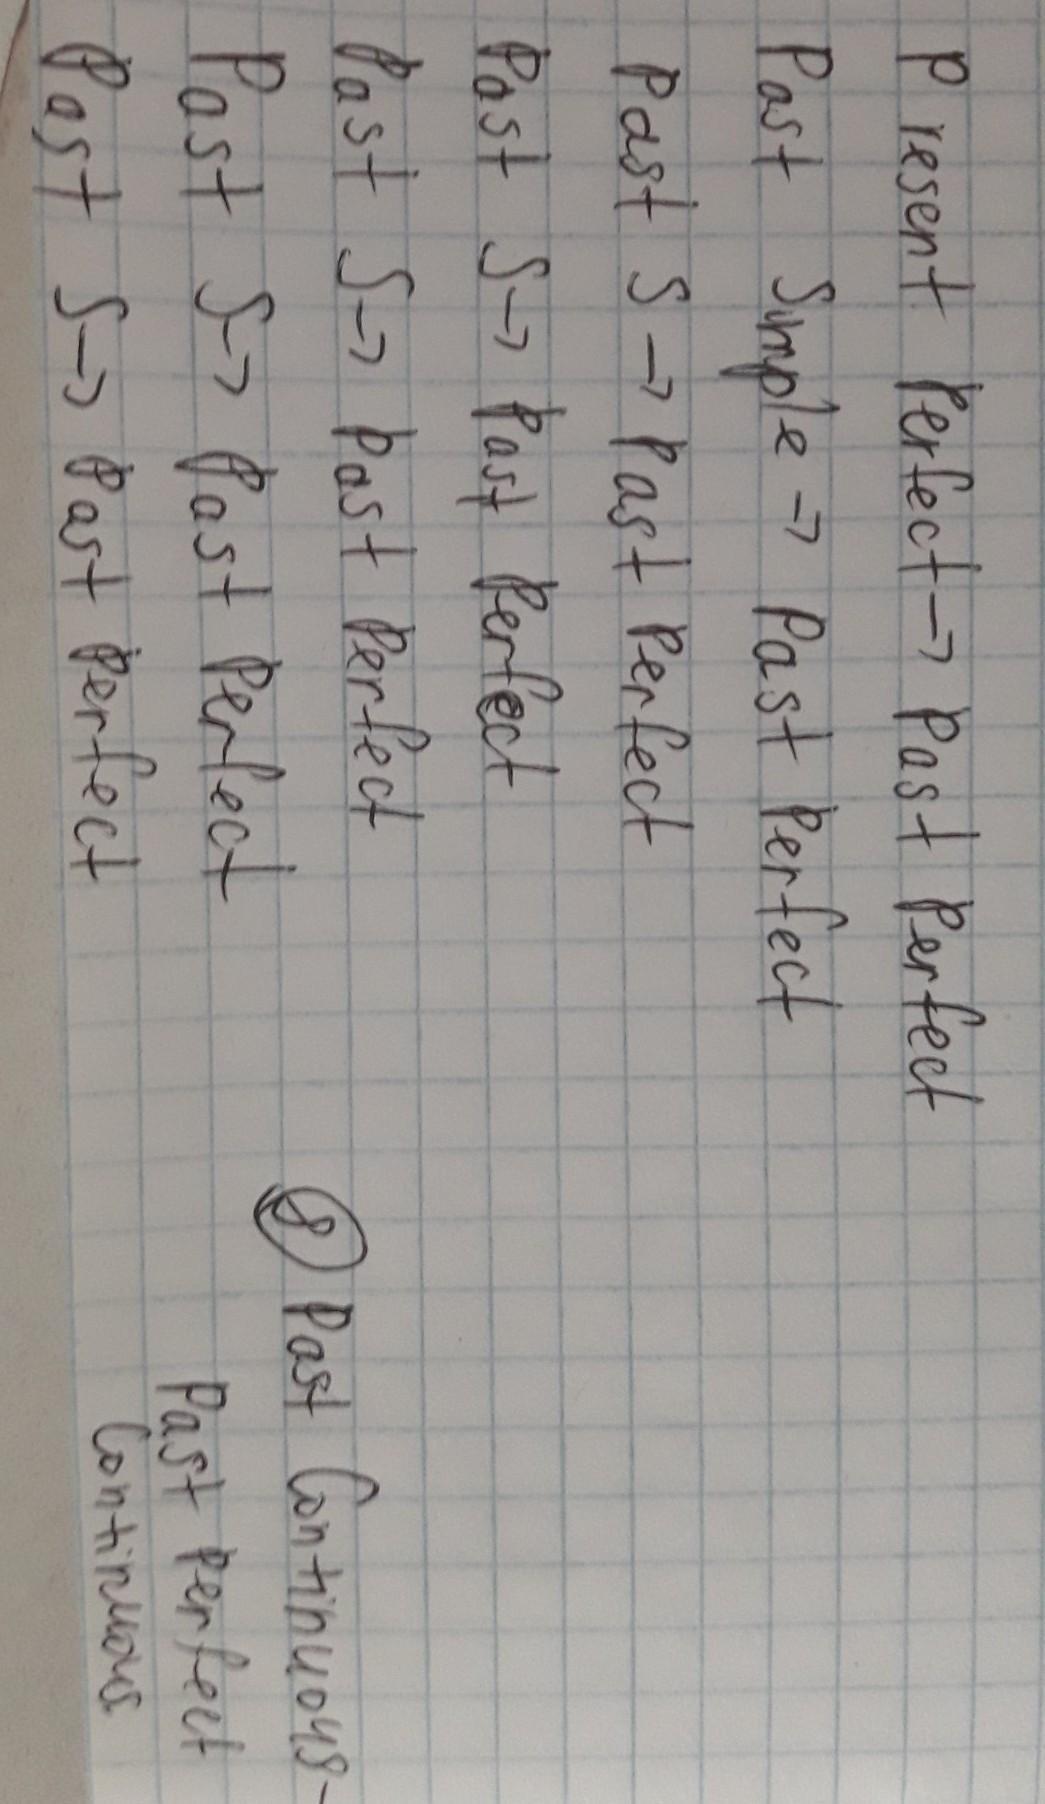 Present Perfect → Past Perfect
Past Simple → Past Perfect
Past S → Past Perfect
Past S → Past Perfect
Past S → Past Perfect
Past S → Past Perfect
Past S → Past Perfect
8 Past Continuous -
Past Perfect
Continuous